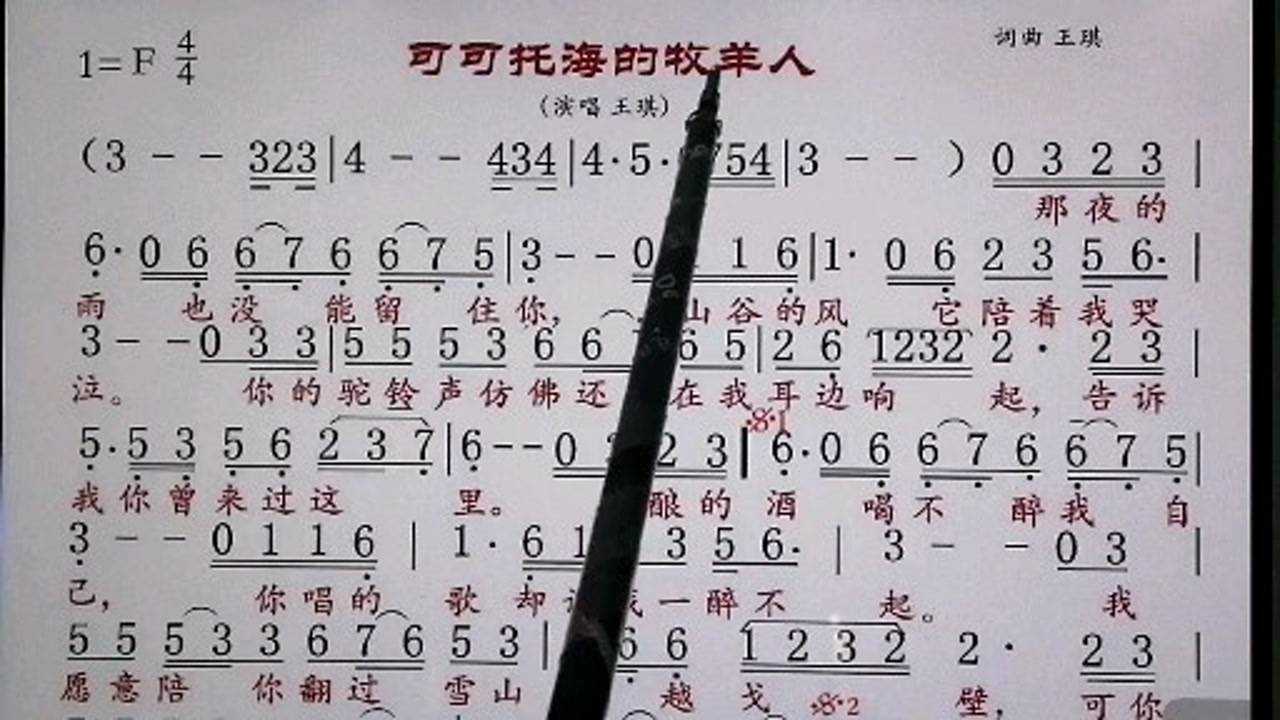 1= F 4/4 可可托海的牧羊人 词曲 王琪
(演唱 王琪)
(3 - - 323|4 - - 434|4·5· 754|3 - - ) 0 3 2 3 |
那夜的
6· 0 6 6 7 6 6 7 5|3 - - 0 1 6|1· 0 6 2 3 5 6· |
雨 也没 能留 住你, 山谷的风 它陪着我哭
3 - - 0 3 3|5 5 5 3 6 6 6 5|2 6 1232 2 · 2 3 |
泣。 你的驼铃声仿佛还 在我耳边响 起, 告诉
5·5 3 5 6 2 3 7|6 - - 0 2 3 | 6·0 6 6 7 6 6 7 5|
我你曾来过这 里。 酿的 酒 喝不 醉我 自
3 - - 0 1 1 6 | 1 · 6 1 3 5 6· | 3 - - 0 3 |
己, 你唱的 歌 却 我一醉不 起。 我
5 5 5 3 3 6 7 6 5 3 | 6 6 1 2 3 2 2 · 2 3 |
愿意陪 你翻过 雪山 越 戈 壁, 可你